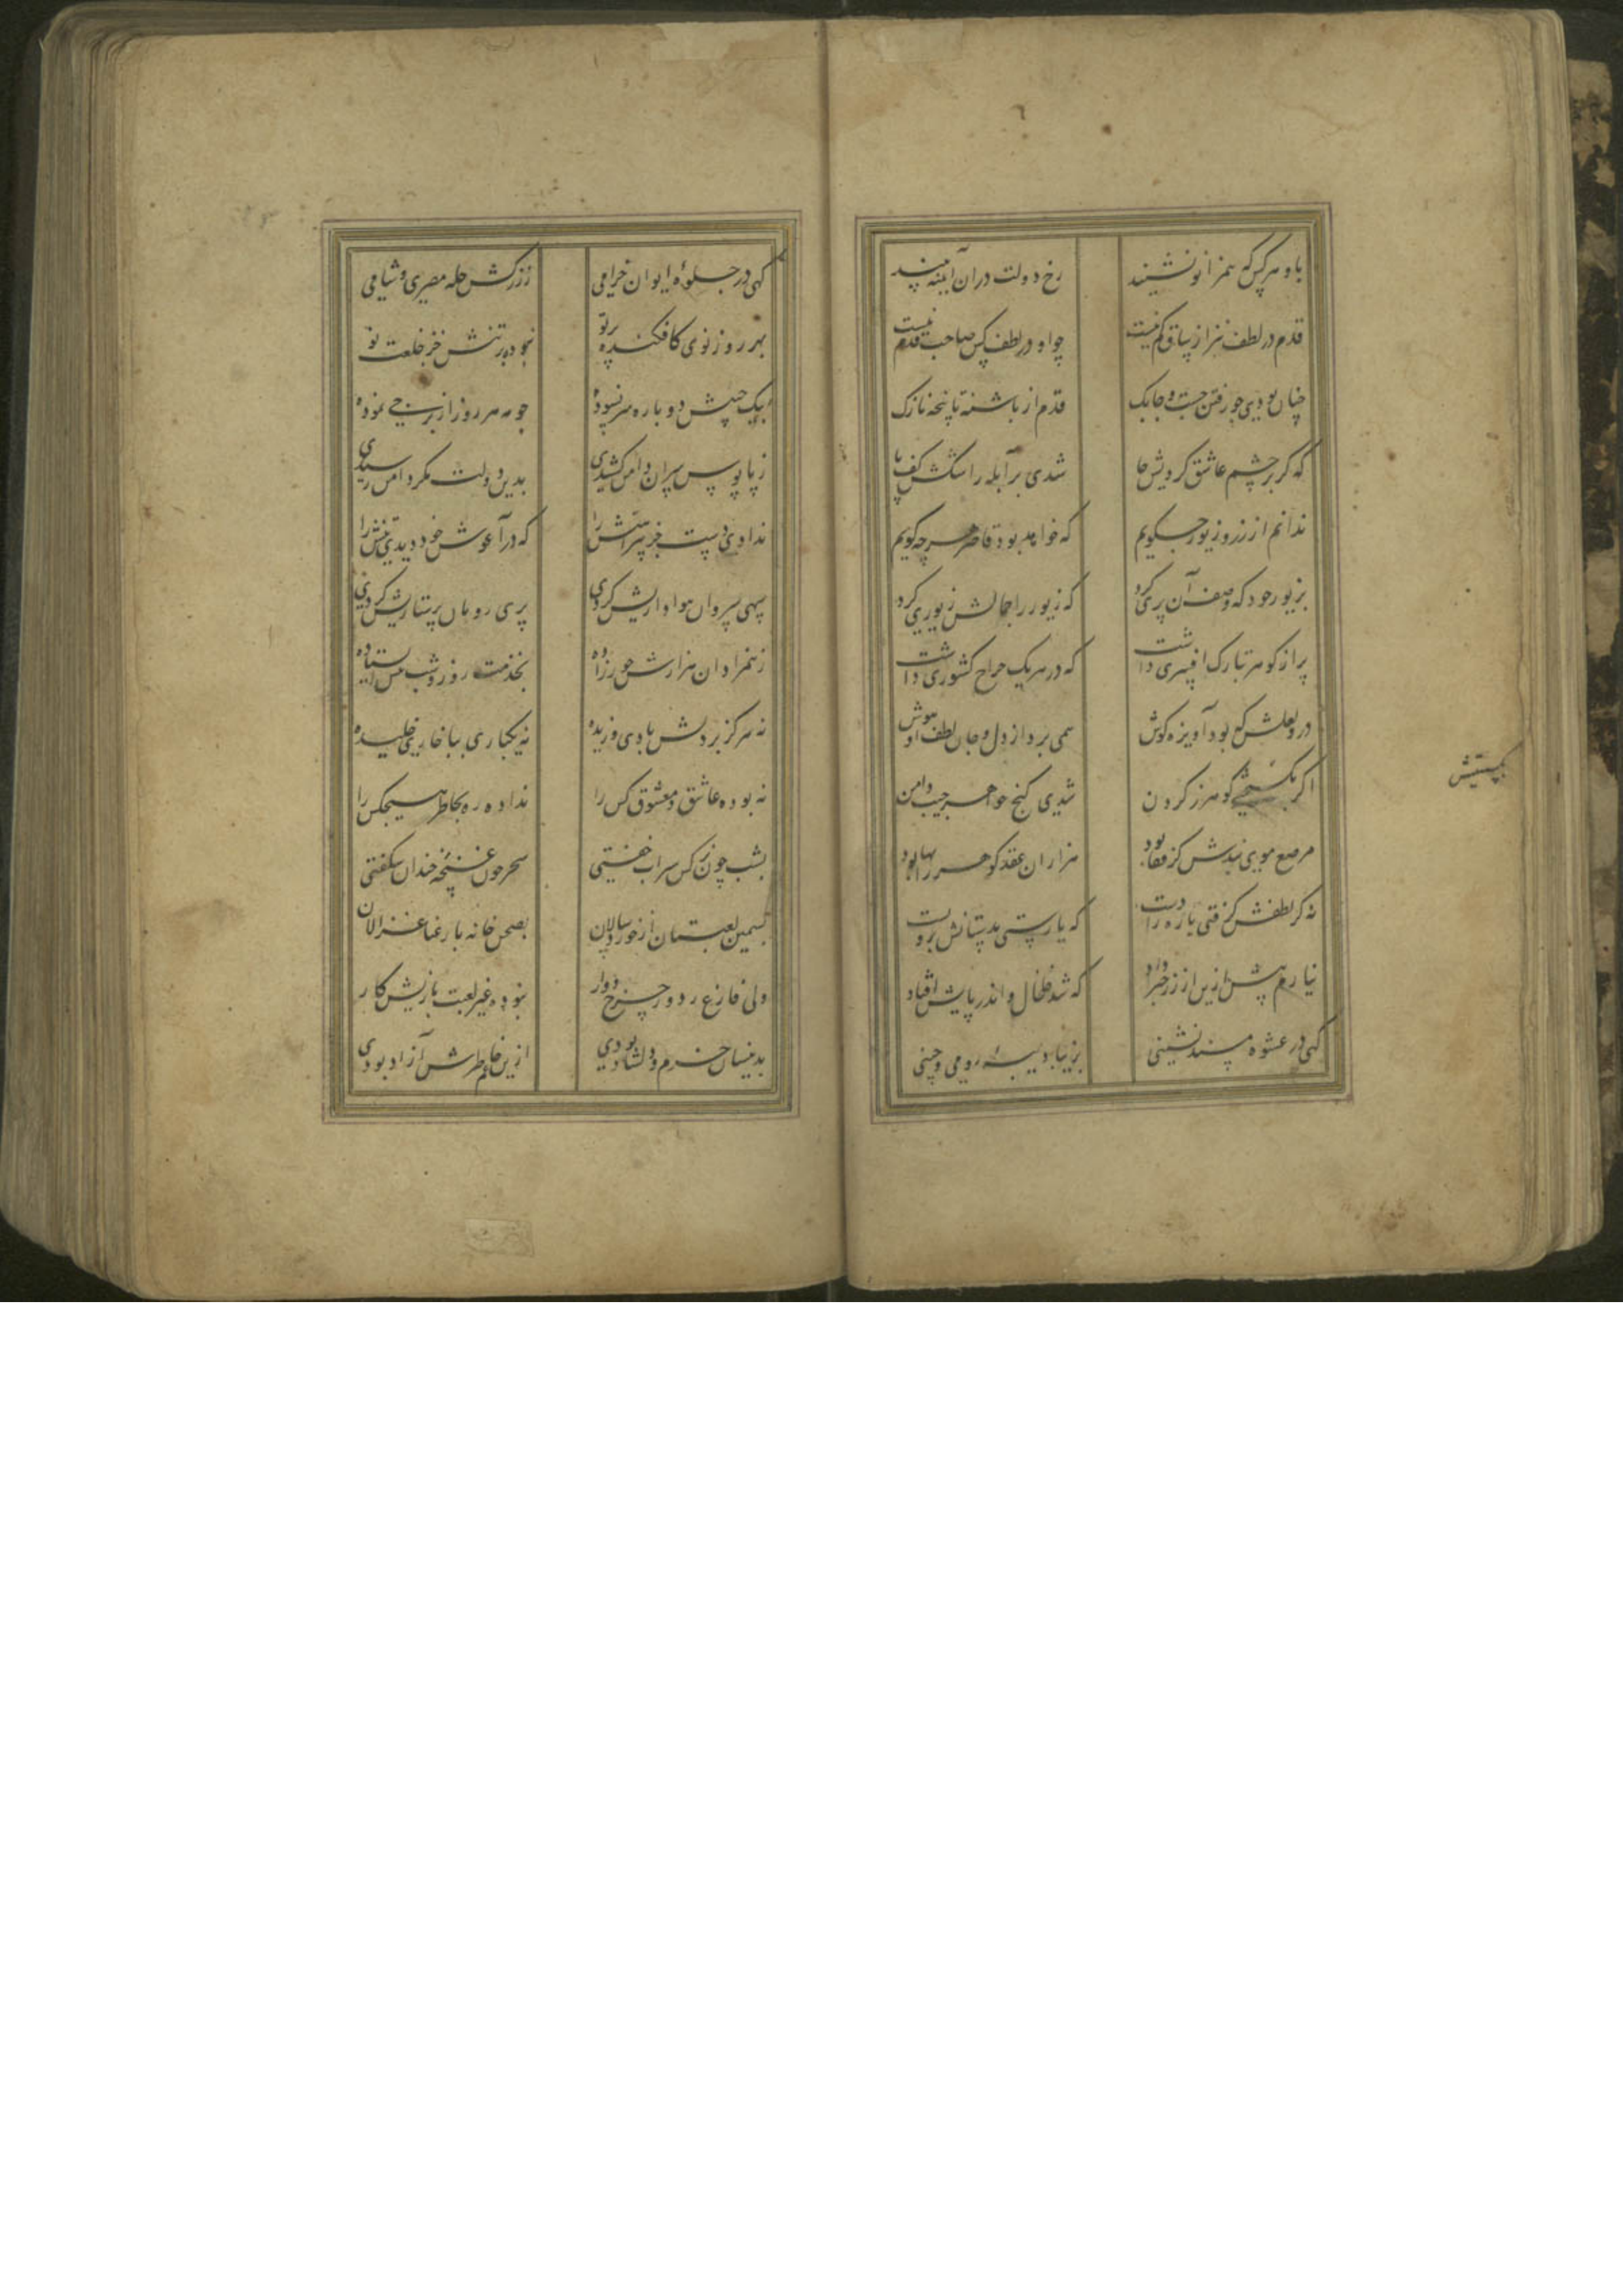 باو هر کس که همزانو نشیند رخ دولت در آن آیینه بیند
قدم در لطف نیز از ساق کم نیست چو او در لطف کس صاحب قدم نیست
چنان بودی چو رفتن جست و چابک قدم از پاشنه تا پنجه نازک
که گر بر چشم عاشق کردیش جا شدی پر آبله ز اشکش کف پا
ندانم از زر و زیور چه گویم که خواهد بود قاصر هر چه گویم
بزیور خود که وصف آن پری کرد که زیور را جمالش زیوری کرد
پر از گوهر بتارک افسری داشت که در هر یک خراج کشوری داشت
در و لعلش که بود آویزه گوش همی برد از دل و جان لطف او هوش
اگر گوهر ز گردن شدی گنج جواهر جیب و دامن
بگسستیش
مرصع موی بندش کز قفا بود هزاران عقد گوهر را بها بود
نه گر لطفش گرفتی یاره را دست که یارستی بدستانش برو بست
نیارم بیش ازین از زر خبر داد که شد خلخال و اندر پایش افتاد
گهی در عشوه مسند نشینی بزیبا دیبه رومی و چینی
گهی در جلوه ایوان خرامی ز زرکش حله مصری و شامی
بهر روز نوی کافکنده پرتو نبوده بر تنش جز خلعت نو
بیک جیبش دو باره سر نسوده چو مه هر روز از برجی نموده
ز پابوس سران دامن کشیدی بدین دولت مگر دامن رسیدی
ندادی دست جز پیراهنش را که در آغوش خود دیدی تنش را
سهی سروان هواداریش کردی پری رویان پرستاریش کردی
ز همزادان هزارش حورزاده بخدمت روز و شب پیش ایستاده
نه هرگز بر دلش بادی وزیده نه یکباری بپا خاری خلیده
نه بوده عاشق و معشوق کس را نداده ره بخاطر هیچکس را
بشب چون نرگس سیراب خفتی سحر چون غنچه خندان شکفتی
بسیمین لعبتان از خوردسالان بصحن خانه با رعنا غزالان
ولی فارغ ز دور چرخ دوار نبوده غیر لعبت بازیش کار
بدینسان خرم و دلشاد بودی ازین غم خاطرش آزاد بودی